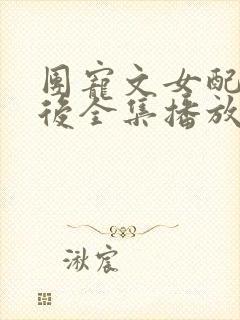 團寵文女配
後全集播放
湫宸